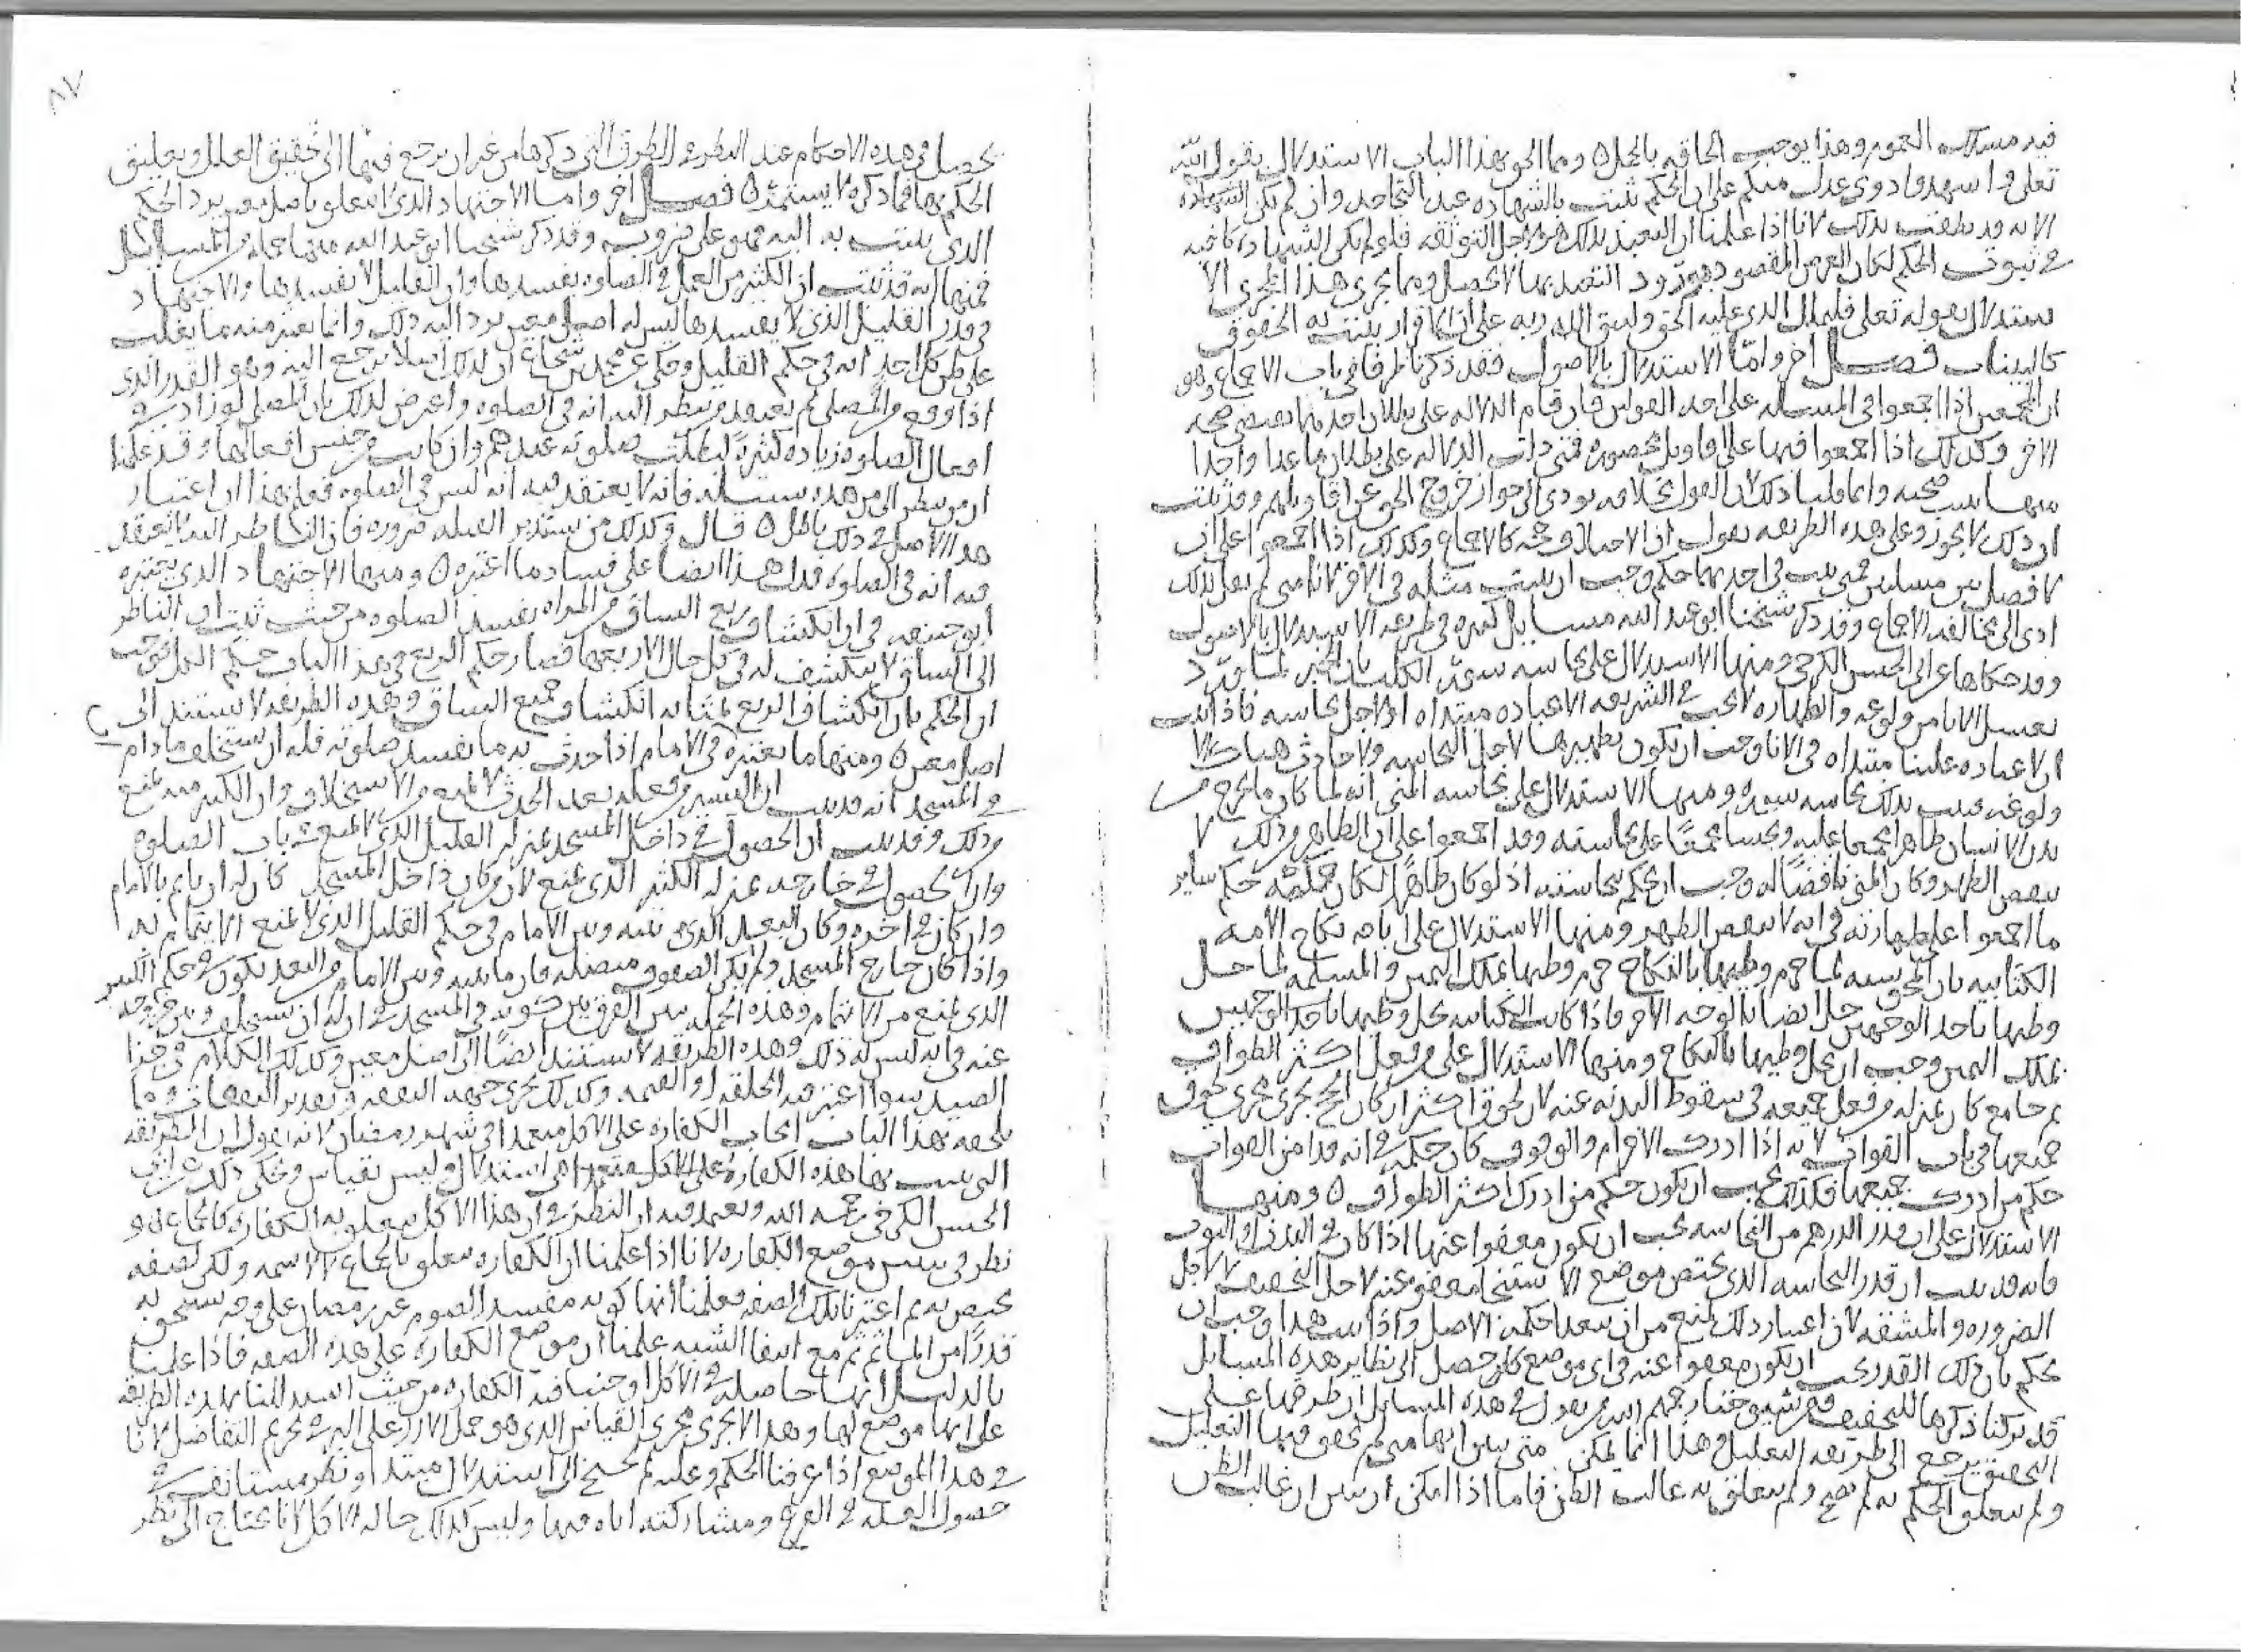 فيه مسلك العموم وهذا يوجب الحاقه بالجلي ومما الحق بهذا الباب الاستدلال بقول الله
تعلى واشهدوا ذوى عدل منكم على ان الحكم يثبت بالشهاده عند التجاحد وان لم تكن الشهاده
الايه قد نطقت بذلك لانا اذا علمنا ان التعبد بذلك هو لاجل التوثقه فلو لم تكن الشهاده كافيه
في ثبوت الحكم لكان الغرض المقصود بورود التعبد بها لا يحصل ومما يجرى هذا المجرى الا
ستدلال بقوله تعلى فليملل الذى عليه الحق وليتق الله ربه على ان الاقرار يثبت به الحقوق
كالبينات فصل اخر واما الاستدلال بالاصول فقد ذكرنا طرفا في باب الاجماع وهو
ان المجمعين اذا اجمعوا في المسله على احد القولين فان قام الدلاله على بطلان احدهما تقتضى صحه
الاخر وكذلك اذا اجمعوا فيها على اقاويل محصوره فمتى دلت الدلاله على بطلان ما عدا واحدا
منها ثبت صحته وانما قلنا ذلك لان القول بخلافه يودى الى جواز خروج الحق عن اقاويلهم وقد ثبت
ان ذلك لا يجوز وعلى هذه الطريقه نقول ان الاجماع وكذلك اذا اجمعوا على ان
لا فصل بين مسلتين فمتى ثبت في احديهما حكم وجب ان يثبت مثله في الاخرى لانا متى لم نقل بذلك
ادى الى مخالفه الاجماع وقد ذكر شيخنا ابو عبد الله مسايل كثيره في طريقه الاستدلال بالاصول
وقد حكاها عن ابى الحسن الكرخى ومنها الاستدلال على نجاسه سور الكلب بان الخبر لما ورد
بغسل الانا من ولوغه والطهاره لا تجب في الشريعه الا عباده مبتداه او لاجل نجاسه فاذا ثبت
ان لا عباده علينا مبتداه في الانا وجب ان يكون تطهيرها لاجل النجاسه ولا حادث هناك الا
ولوغه فثبت بذلك نجاسه سوره ومنها الاستدلال على نجاسه المنى انه لما كان ما يخرج من
بدن الانسان طاهرا مجمعا عليه ونجسا مجمعا على نجاسته وقد اجمعوا على ان الطاهر من ذلك لا
ينقض الطهر وكان المنى ناقضا له وجب ان يحكم بنجاسته اذ لو كان طاهرا لكان حكمه حكم ساير
ما اجمعوا على طهارته في انه لا ينقض الطهر ومنها الاستدلال على اباحه نكاح الامه
الكتابيه بان المجوسيه لما حرم وطيها بالنكاح حرم وطيها بملك اليمين والمسلمه لما حل
وطيها باحد الوجهين حل ايضا بالوجه الاخر فاذا كانت الكتابيه يحل وطيها باحد الوجهين
بملك اليمين وجب ان يحل وطيها بالنكاح ومنها الاستدلال على من فعل اكثر الطواف
ثم جامع كان بمنزله من فعل جميعه في سقوط البدنه عنه لان لحوق اكثر اركان الحج يجرى مجرى لحوق
جميعها في باب الفوات لانه اذا ادرك الاحرام والوقوف كان حكمه في انه قد امن الفوات
حكم من ادرك جميعها فكذلك يجب ان يكون حكم من ادرك اكثر الطواف ومنها
الاستدلال على ان قدر الدرهم من النجاسه يجب ان يكون معفوا عنها اذا كان في البدن او الثوب
فانه قد ثبت ان قدر النجاسه الذى يختص موضع الاستنجا معفو عنه لاجل التخفيف لا لاجل
الضروره والمشقه لان اعتبار ذلك يمنع من ان يتعدا حكمه الاصل واذا ثبت هذا وجب ان
يحكم بان ذلك القدر يجب ان يكون معفوا عنه في اى موضع كان حصل الى نظاير هذه المسايل
قد تركنا ذكرها للتخفيف ومن شيوخنا رحمهم الله من يقول في هذه المسايل ان طرقها على
التحقيق يرجع الى طريقه التعليل وهذا انما يمكن متى بين انها متى لم تحقق فيها التعليل
ولم يتعلق الحكم به لم تصح ولم يتعلق به غالب الظن فاما اذا امكن ان يتبين ان غالب الظن
٨٧
يحصل في هذه الاحكام عند النظر في الطرق التى ذكرها من غير ان يرجع فيها الى تحقيق العلل وتعليق
الحكم بها فما ذكره لا يستمر فصل اخر واما الاجتهاد الذى لا يتعلق باصل معين يرد الحكم
الذى يثبت به اليه فهو على ضروب وقد ذكر شيخنا ابو عبد الله منها جمله من المسايل
فمنها انه قد ثبت ان الكثير من العمل في الصلوه يفسدها وان القليل لا يفسدها والاجتهاد
في قدر القليل الذى لا يفسدها ليس له اصل معين يرد اليه ذلك وانما يعتبر منه ما يغلب
على ظن كل احد انه في حكم القليل وحكى عن محمد بن شجاع ان لذلك اصلا يرجع اليه وهو القدر الذى
اذا وقع من المصلى لم يعتقد من ينظر اليه انه في الصلوه واعترض لذلك بان المصلى لو زاد في
افعال الصلوه زياده كثيره لبطلت صلوته عندهم وان كانت من جنس افعالها وقد علمنا
ان من ينظر الى من هذه سبيله فانه لا يعتقد فيه انه ليس في الصلوه فعلم بهذا ان اعتبار
هذا الاصل في ذلك باطل قال وكذلك من يستدبر القبله ضروره فان الناظر اليه لا يعتقد
فيه انه في الصلوه فدل هذا ايضا على فساد ما اعتبره ومنها الاجتهاد الذى يعتبره
ابو حنيفه في ان انكشاف ربع الساق من المراه يفسد الصلوه من حيث ثبت ان الناظر
الى الساق لا ينكشف له في كل حال الا ربعها فصار حكم الربع في هذا الباب حكم الكل فوجب
ان الحكم بان انكشاف الربع بمثابه انكشاف جميع الساق وهذه الطريقه لا تستند الى
اصل معين ومنها ما يعتبره في الامام اذا حدث به ما يفسد صلوته فله ان يستخلف ما دام
في المسجد انه قد ثبت ان اليسير من فعله بعد الحدث لا يمنع من الاستخلاف وان الكثير منه يمنع
من ذلك وقد ثبت ان الحصول في داخل المسجد بمنزله القليل الذى لا يمنع في باب الصلوه
وان الحصول في خارجه بمنزله الكثير الذى يمنع لان من كان داخل المسجد كان له ان ياتم بالامام
وان كان في اخره وكان البعد الذى بينه وبين الامام في حكم القليل الذى لا يمنع الايتمام به
واذا كان خارج المسجد ولم تكن الصفوف متصله فان ما بينه وبين الامام من البعد يكون في حكم الكثير
الذى يمنع من الايتمام وهذه الجمله تبين الفرق بين كونه في المسجد في ان له ان يستخلف وبين خروجه
عنه في انه ليس له ذلك وهذه الطريقه لا تستند ايضا الى اصل معين وكذلك الكلام في جزا
الصيد سوا اعتبر فيه الخلقه او القيمه وكذلك يجرى جهه النفقه وتقدير النفقات ومما
يلحقه بهذا الباب ايجاب الكفاره على الاكل متعمدا في شهر رمضان لانه يقول ان الطريقه
التى يثبت بها هذه الكفاره على الاكل متعمدا هى استدلال وليس بقياس وحكى ذلك عن ابى
الحسن الكرخى رحمه الله ويعتمد فيه ان النظر في ان هذا الاكل يتعلق به الكفاره كالجماع هو
نظر في تبيين موضع الكفاره لانا اذا علمنا ان الكفاره تتعلق بالجماع لا لاسمه ولكن لصفه
يختص به ثم اعتبرنا تلك الصفه فعلمنا انها كونه مفسدا لصوم عن رمضان على وجه يستحق به
قدرا من الماثم مع انتفا الشبه علمنا ان موضع الكفاره على هذه الصفه فاذا علمنا
بالدليل انها حاصله في الاكل اوجبنا فيه الكفاره من حيث استدللنا بهذه الطريقه
على انها موضع لها وهذا لا يجرى مجرى القياس الذى هو حمل الارز على البر في تحريم التفاضل لانا
في هذا الموضع اذا عرفنا الحكم وعلته لم نحتج الى استدلال مبتدا ونظر مستانف في
حصول العله في الفرع ومشاركته اياه فيها وليس كذلك حاله الاكل لانا نحتاج الى نظر